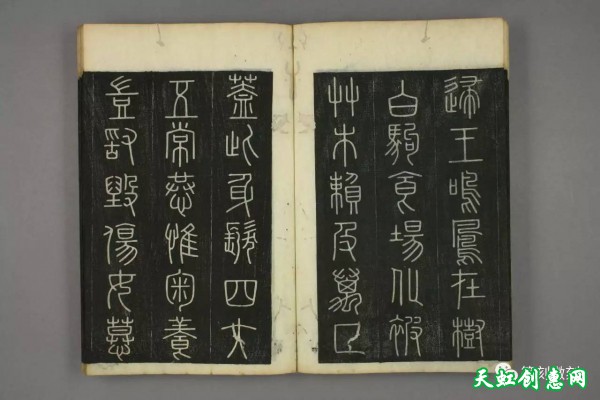 歸王鳴鳳在樹
白駒食場化被
艸木賴及萬匚
蓋此身髮四大
五常恭惟鞠養
豈敢毀傷女慕
天虹创惠网